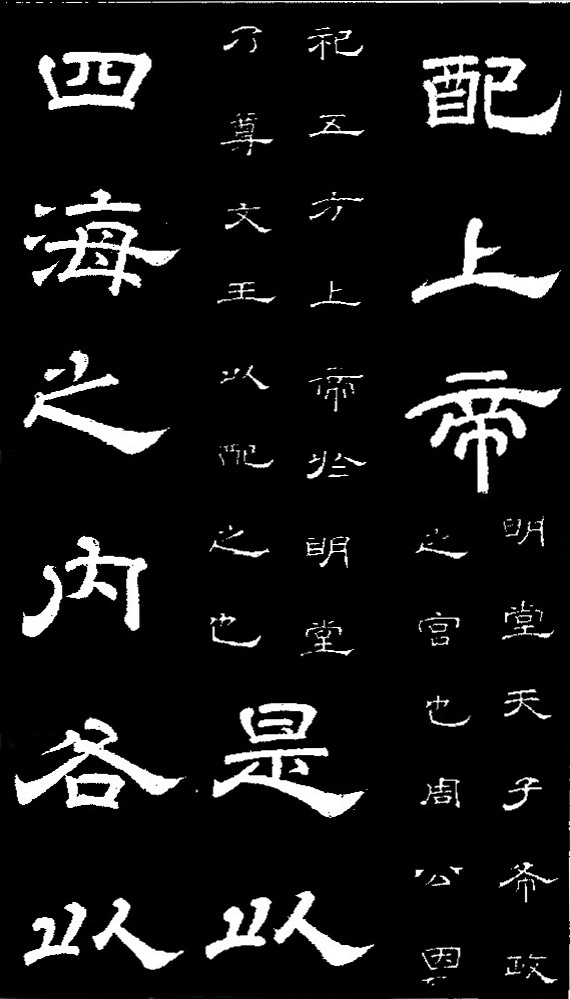 配上帝
明堂天子布政
之宮也周公因
祀五方上帝於明堂
乃尊文王以配之也
是以
四海之内各以